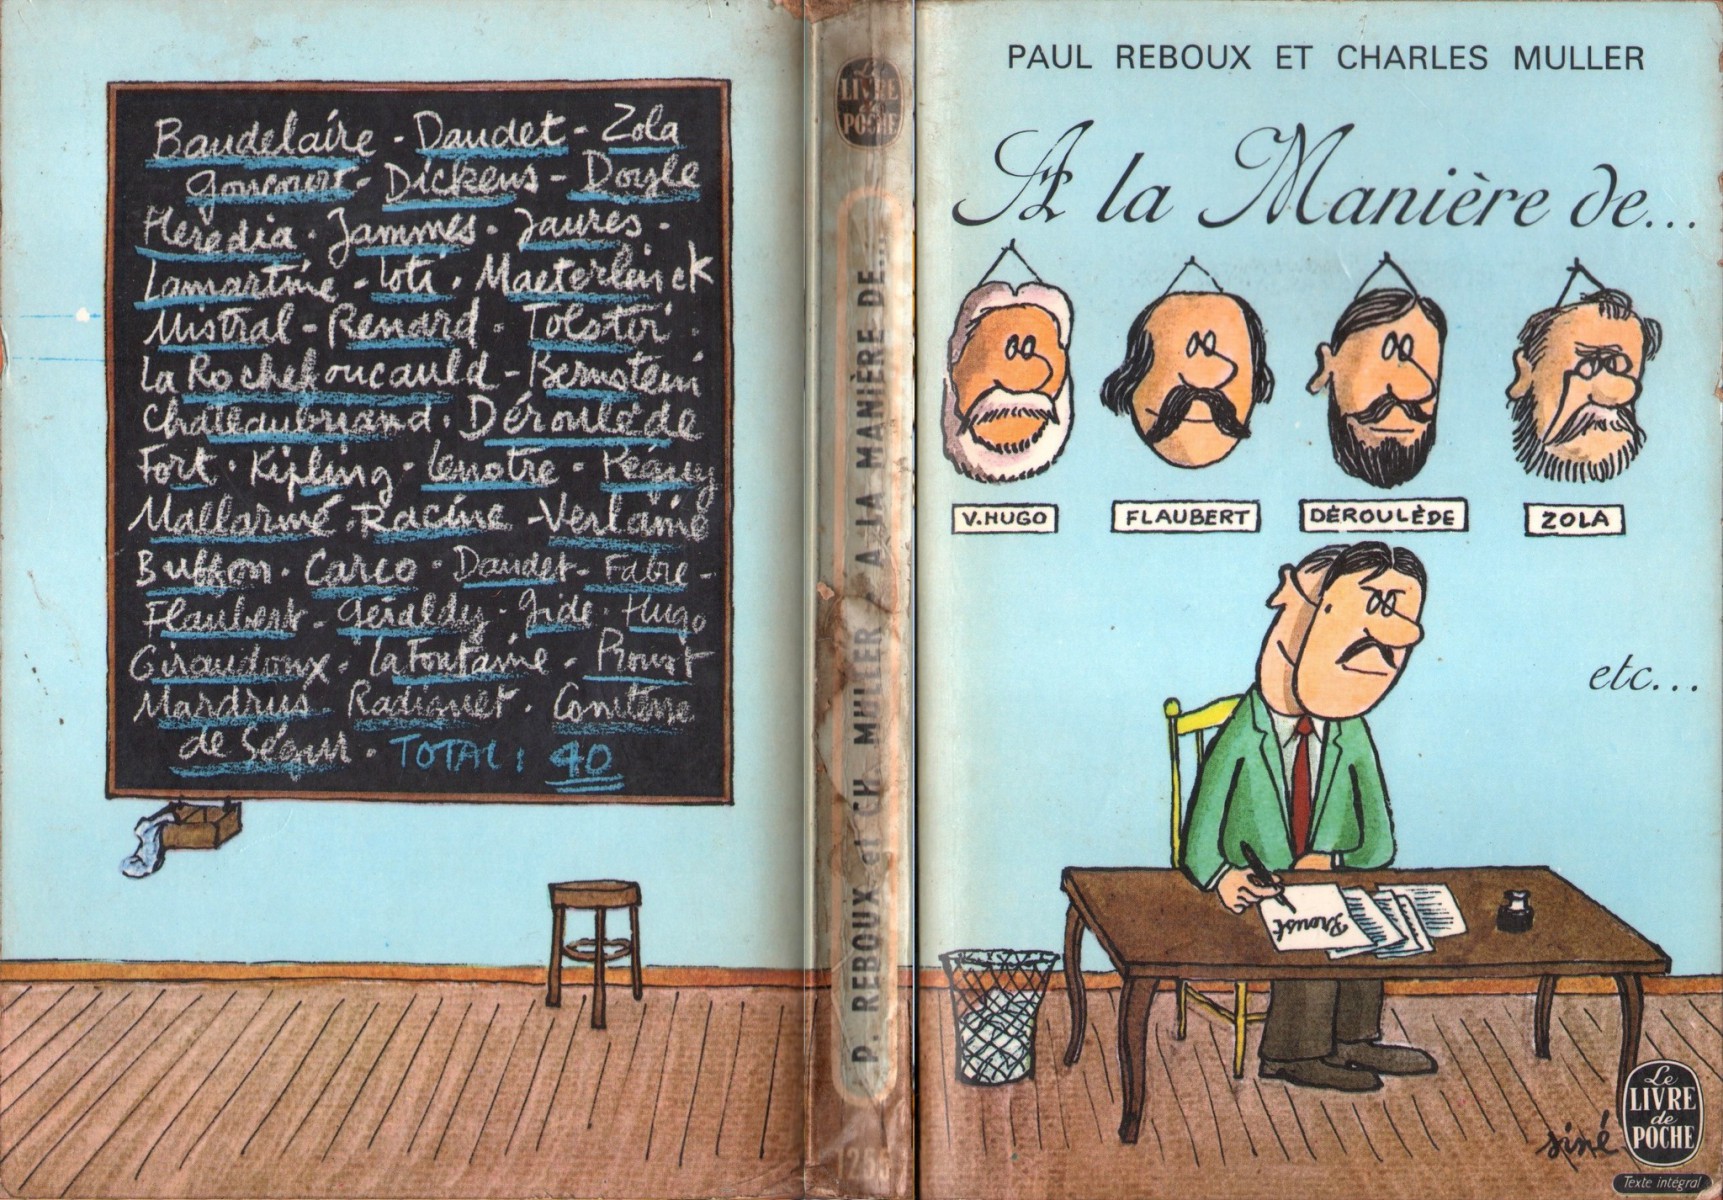 Baudelaire - Daudet - Zola
Goncourt - Dickens - Doyle
Heredia . Jammes . Jaures .
Lamartine - Loti . Maeterlinck
Mistral - Renard . Tolstoï .
La Rochefoucauld - Bernstein
Chateaubriand . Déroulède
Fort . Kipling . Lenotre - Péguy
Mallarmé . Racine - Verlaine
Buffon . Carco . Daudet - Fabre -
Flaubert - Géraldy . Gide . Hugo
Giraudoux . La Fontaine - Proust
Mardrus . Radiguet . Comtesse
de Ségur . TOTAL : 40
Le
LIVRE
de
POCHE
P. REBOUX et CH. MULLER A LA MANIÈRE DE...
PAUL REBOUX ET CHARLES MULLER
A la Manière de...
V.HUGO
FLAUBERT
DÉROULÈDE
ZOLA
etc...
Proust
siné
Le
LIVRE
de
POCHE
Texte intégral